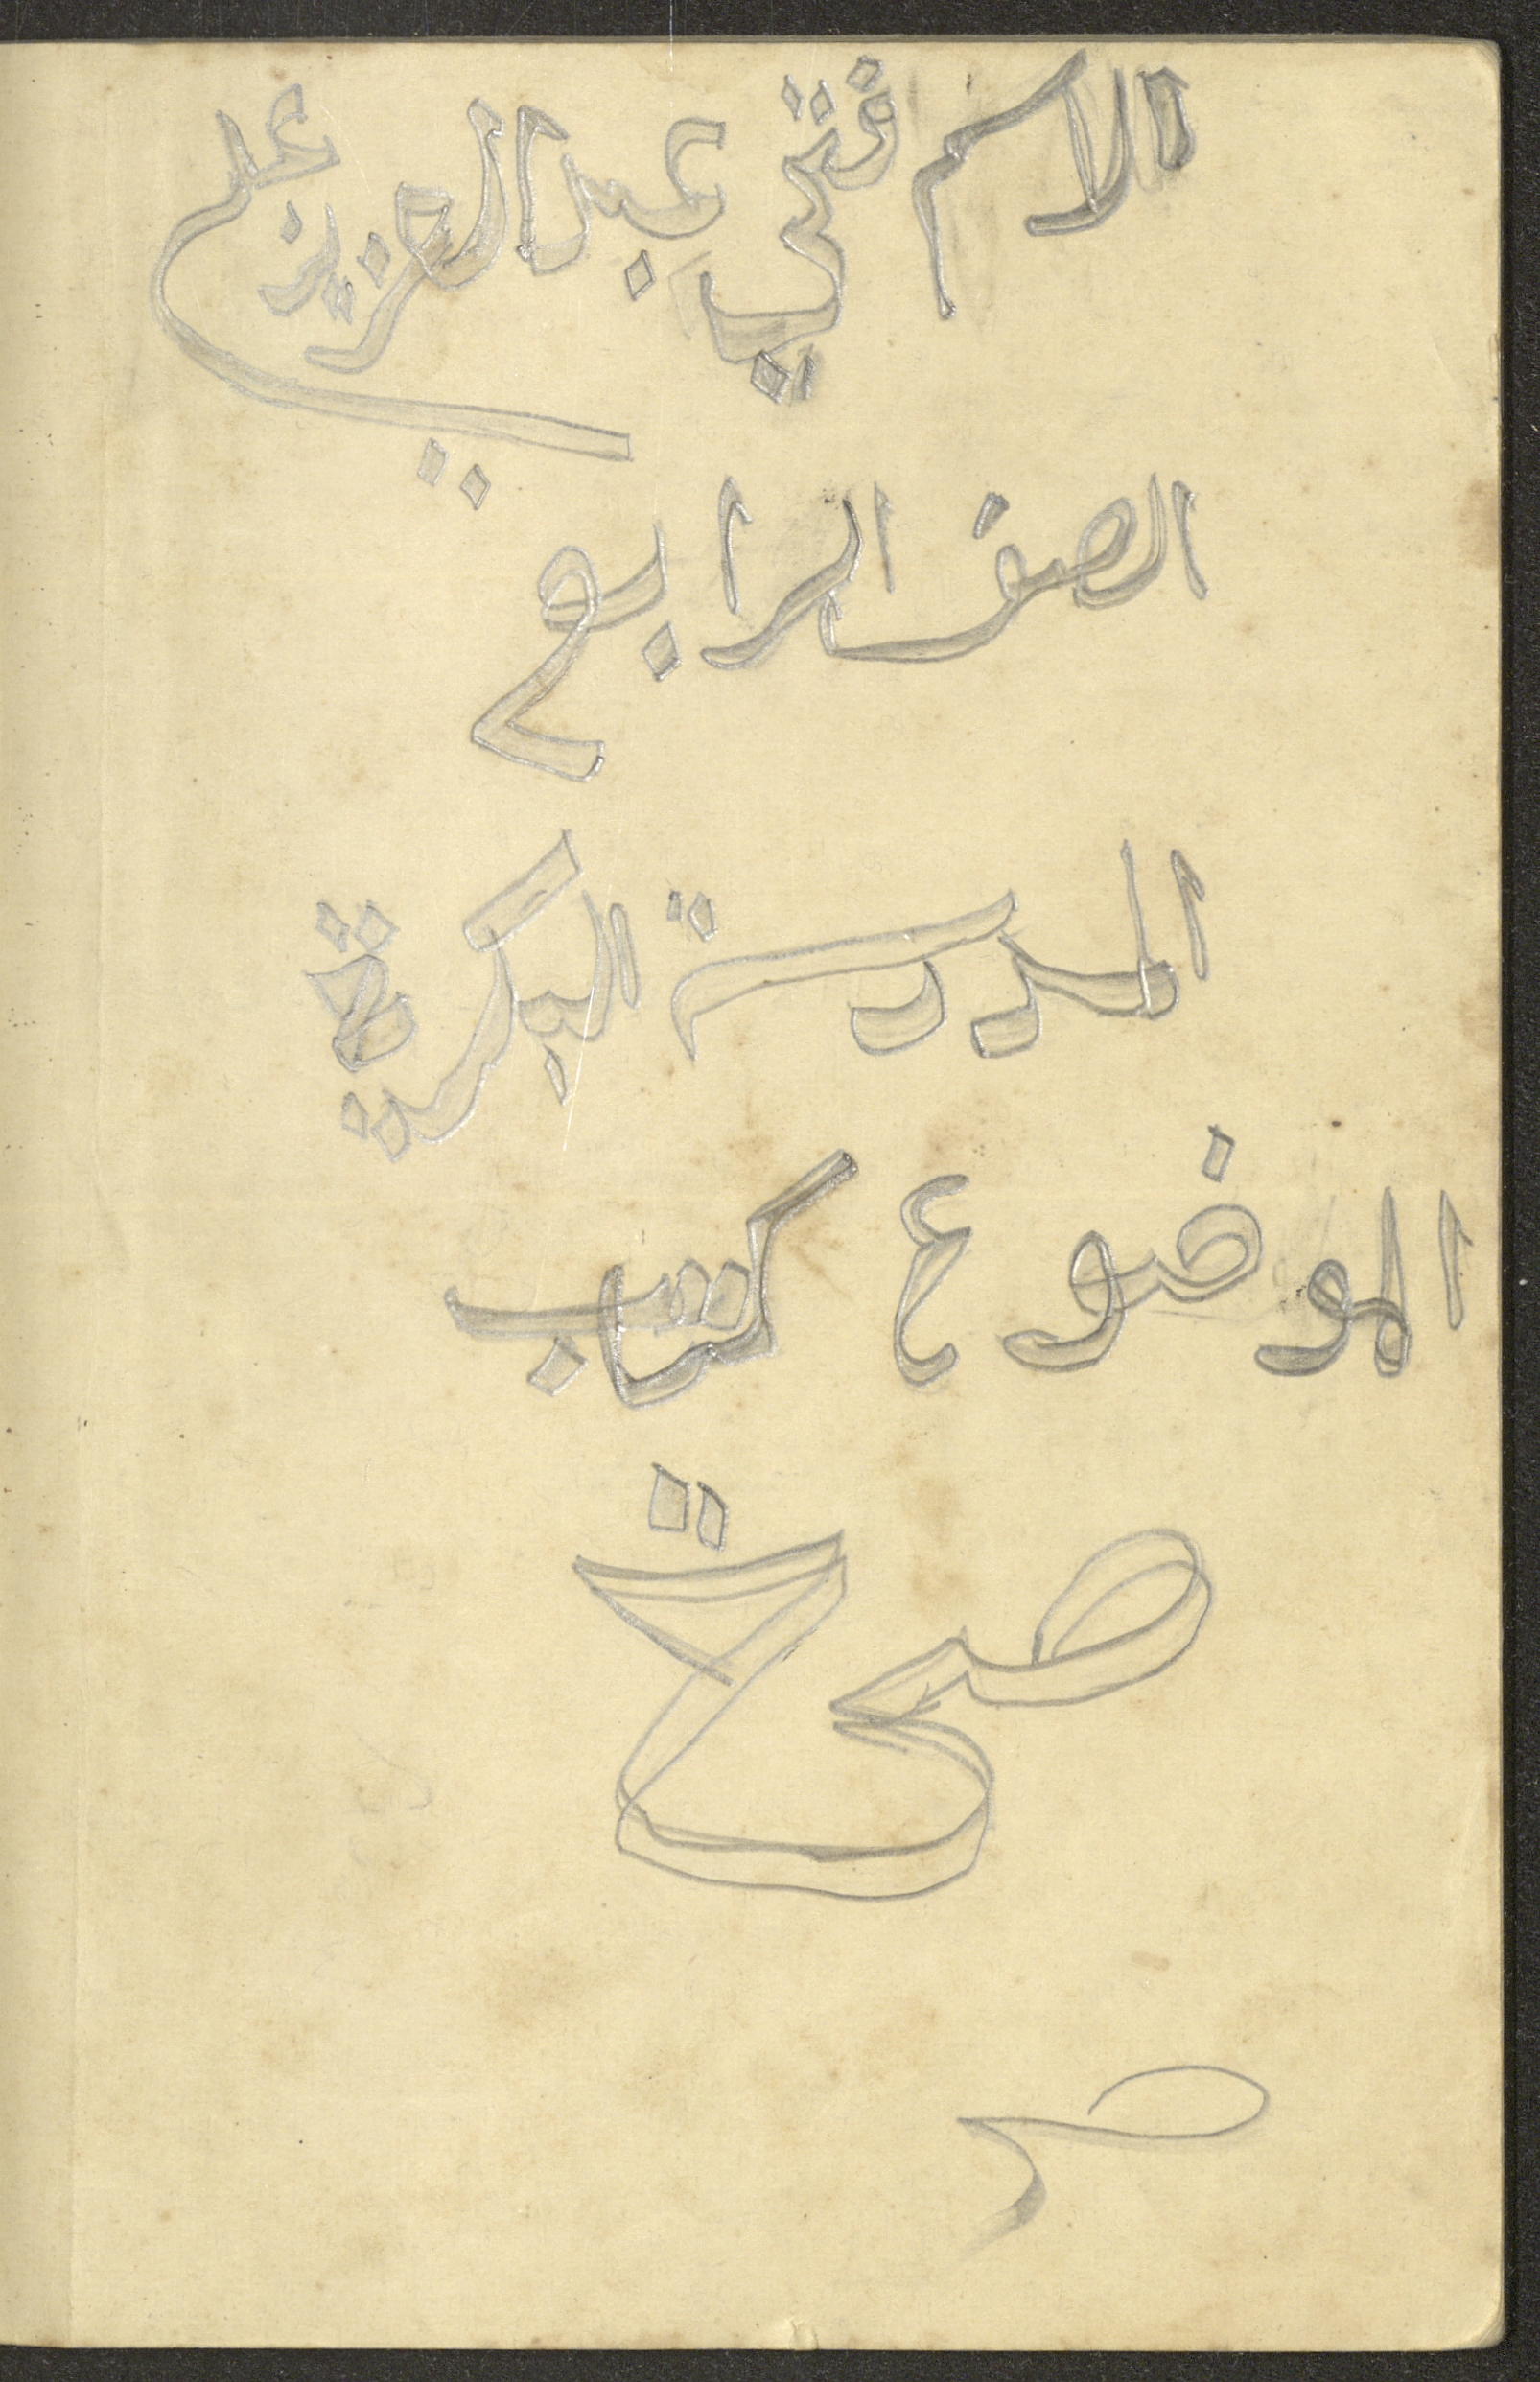 الاسم فتحي عبد العزيز علي
الصف الرابع
المدرسة البكرية
الموضوع كتاب
صحة
صح